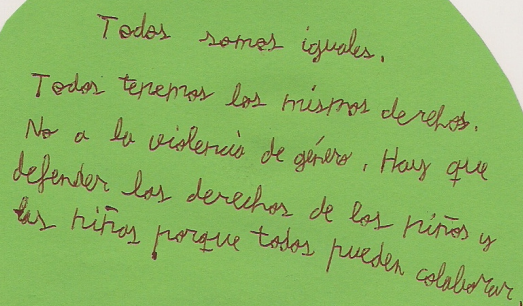 Todos somos iguales.
Todos tenemos los mismos derehos.
No a la violencia de género. Hay que
defender los derechos de los niños y
las niñas porque todos pueden colaborar.